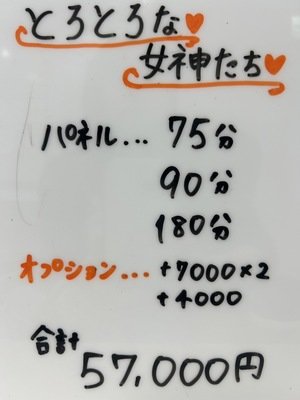 とろとろな♥
女神たち♥
パネル... 75分
90分
180分
オプション... +7000×2
+4000
合計
57,000円